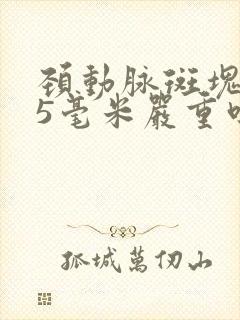 頚動脉斑塊
5毫米嚴重
孤城萬仞山